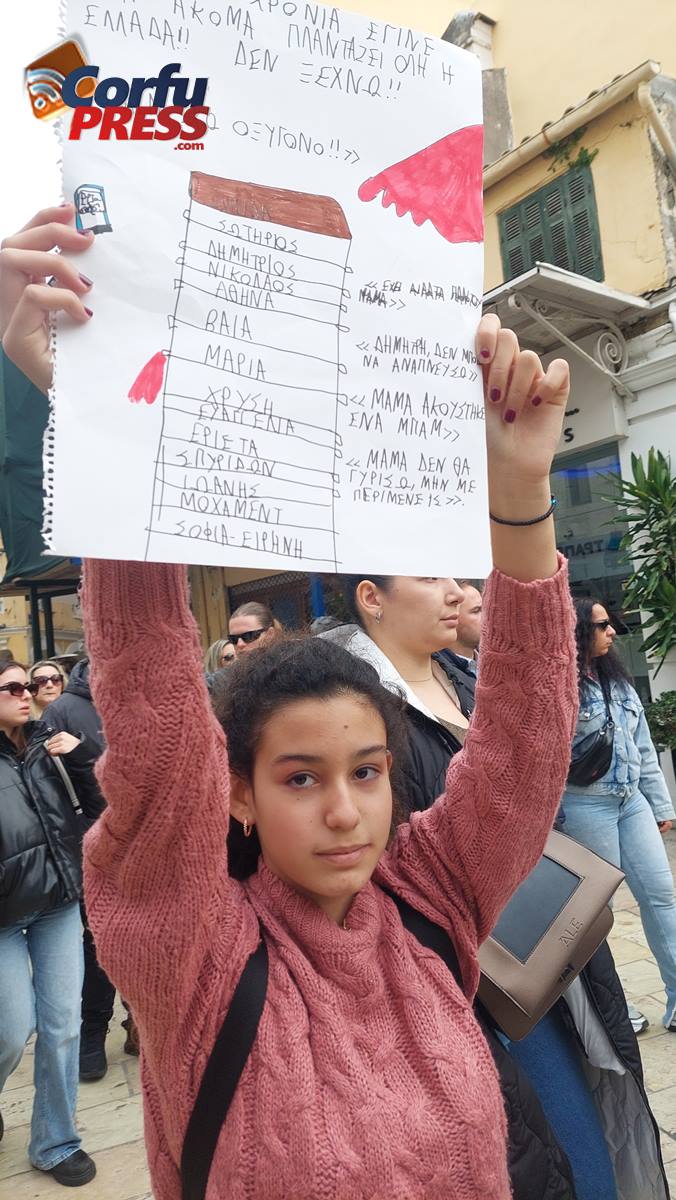 Corfu
PRESS
.com
ΧΡΟΝΙΑ ΕΓΙΝΕ
ΑΚΟΜΑ ΠΛΑΝΤΑΖΕΙ ΟΛΗ Η
ΕΛΛΑΔΑ!!
ΔΕΝ ΞΕΧΝΩ!!
ΟΞΥΓΟΝΟ!!>>
ΣΩΤΗΡΙΟΣ
ΔΗΜΗΤΡΙΟΣ
ΝΙΚΟΛΑΟΣ
ΑΘΗΝΑ
ΒΑΙΑ
ΜΑΡΙΑ
ΧΡΥΣΗ
ΕΥΑΓΓΕΛΙΑ
ΕΡΙΕΤΑ
ΣΠΥΡΙΔΩΝ
ΙΩΑΝΗΣ
ΜΟΧΑΜΕΝΤ
ΣΟΦΙΑ-ΕΙΡΗΝΗ
<< ΕΧΩ
ΜΑΜΑ>>
<< ΔΗΜΗΤΡΗ, ΔΕΝ
ΝΑ ΑΝΑΠΝΕΥΣΩ>>
<< ΜΑΜΑ ΑΚΟΥΣΤΗΚΕ
ΕΝΑ ΜΠΑΜ>>
<< ΜΑΜΑ ΔΕΝ ΘΑ
ΓΥΡΙΣΩ, ΜΗΝ ΜΕ
ΠΕΡΙΜΕΝΕΙΣ>>.
S
ΤΡΑΠΕ
ALE